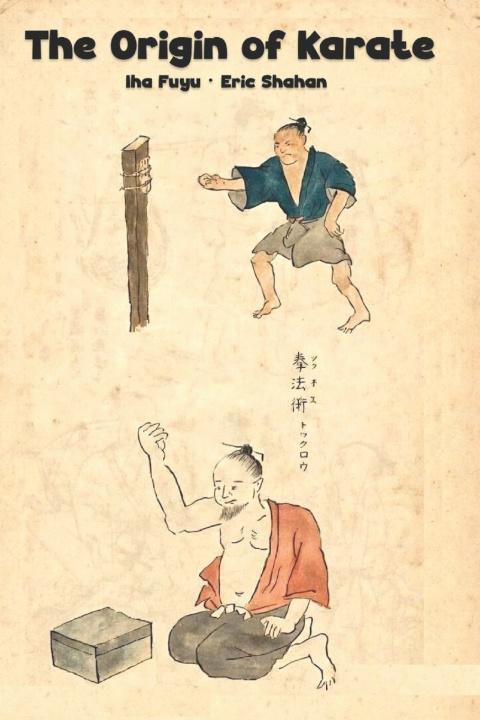 The Origin of Karate
Iha Fuyu · Eric Shahan
拳法術
ツクホヌス
トックロウ